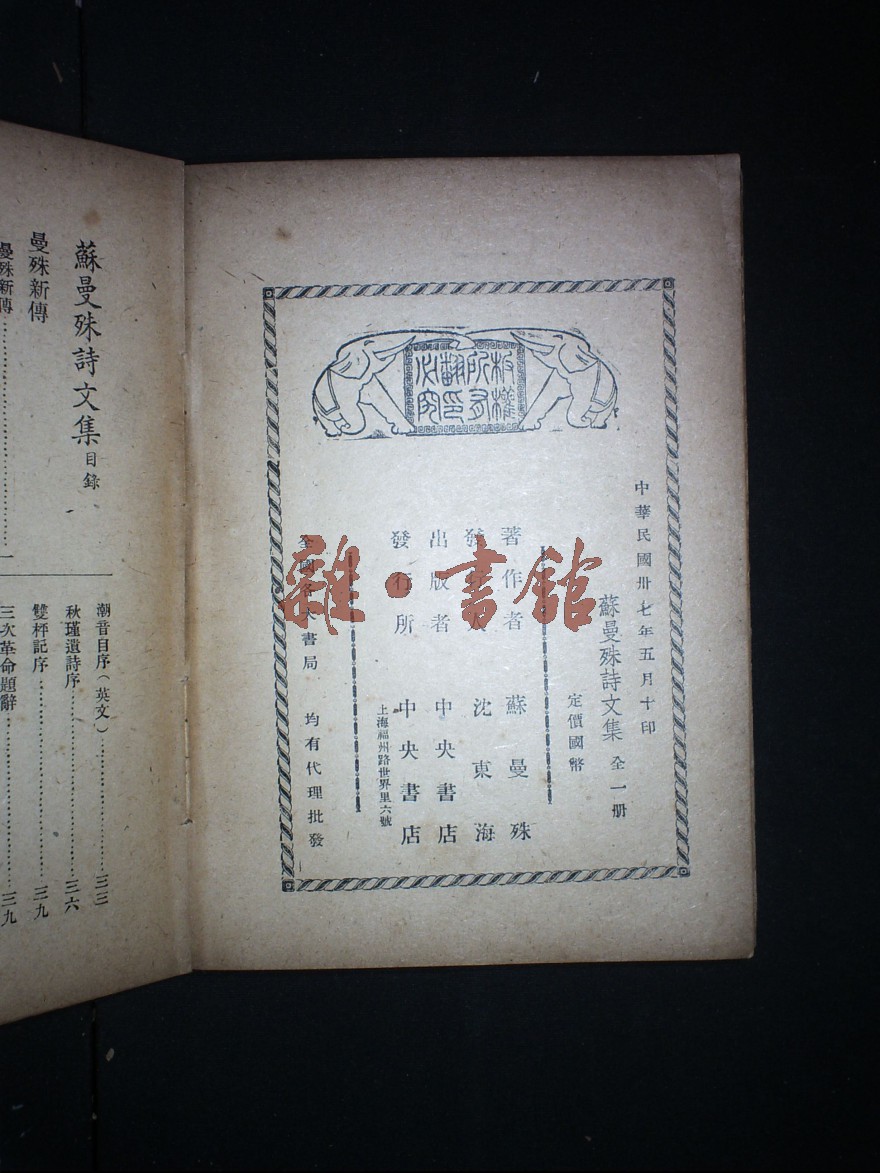 板權
所有
翻印
必究
中華民國卅七年五月十印
蘇曼殊詩文集 全一册
定價國幣
著作者 蘇曼殊
發行人 沈東海
出版者 中央書店
發行所 中央書店
上海福州路世界里六號
全國各大書局 均有代理批發
雜·書館
蘇曼殊詩文集 目錄
曼殊新傳
曼殊新傳……一
潮音自序(英文)……三三
秋瑾遺詩序……三六
雙枰記序……三九
三次革命題辭……三九